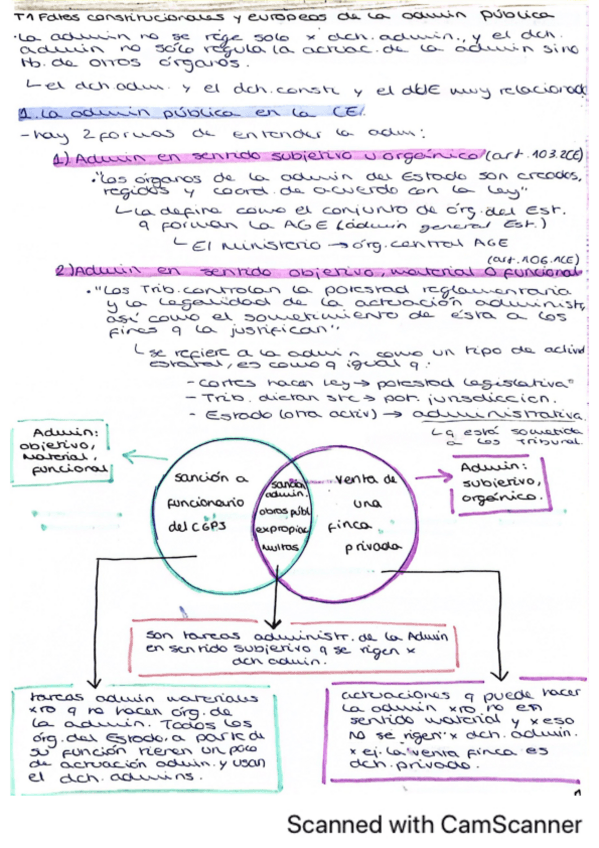 T1 Fdtes constitucionales y europeos de la admin pública
·La admin no se rige solo x dch. admin., y el dch.
admin no solo regula la actuac. de la admin sino
tb. de otros órganos.
↳el dch adm. y el dch. constr y el dUE muy relacionado
1. La admin pública en la CE.
- hay 2 formas de entender la adm:
1) Admin en sentido subjetivo u orgánico (art. 103.2CE)
·"Los órganos de la admin del Estado son creados,
regidos y coord. de acuerdo con la ley"
↳ La define como el conjunto de órg. del Est.
q forman la AGE (admin general Est.)
↳ El Ministerio → órg. central AGE
(art. 106.1CE)
2) Admin en sentido objetivo, material o funcional
·"Los Trib. controlan la potestad reglamentaria
y la legalidad de la actuación administr,
así como el sometimiento de ésta a los
fines q la justifican"
↳ se refiere a la admin como un tipo de activ
estatal, es como q igual q:
- Cortes hacen ley → potestad legislativa"
- Trib. dictan stc → pot. jurisdiccion.
- Estado (otra activ) → administrativa
↳q está sometida
a los Tribunal.
Admin:
objetivo,
material,
funcional
sanción a
funcionario
del CGPJ
sanción
admin.
obras públ
expropiac
multas
venta de
una
finca
privada
Admin:
subjetivo,
orgánico.
son tareas administr. de la Admin
en sentido subjetivo q se rigen x
dch admin.
tareas admin materiales
xro q no hacen órg. de
la admin. Todos los
órg. del Estado, a parte de
su función tienen un poco
de actuación admin. y usan
el dch. admins.
actuaciones q puede hacer
la admin xro no en
sentido material y x eso
no se rigen x dch. admin.
x ej. la venta finca es
dch. privado.
1
Scanned with CamScanner